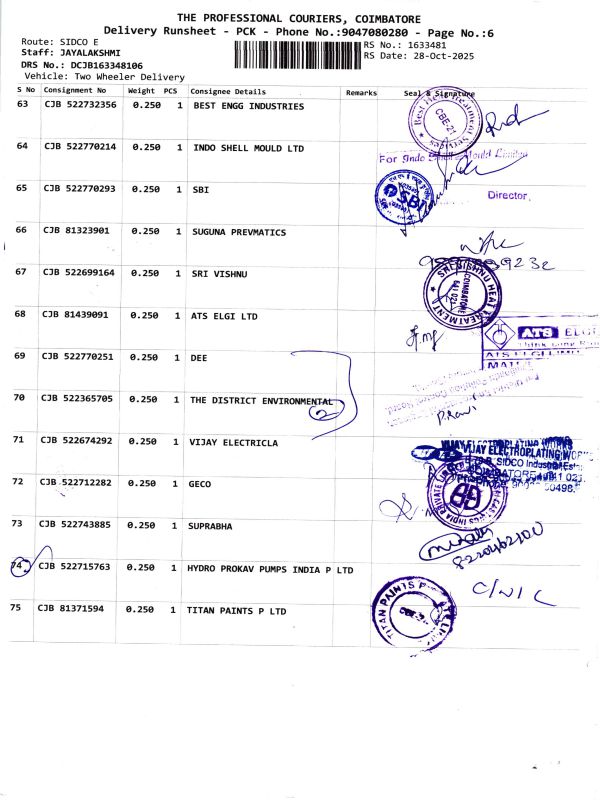 THE PROFESSIONAL COURIERS, COIMBATORE
Delivery Runsheet - PCK - Phone No.:9047080280 - Page No.:6
Route: SIDCO E
Staff: JAYALAKSHMI
RS No.: 1633481
DRS No.: DCJB163348106
RS Date: 28-Oct-2025
Vehicle: Two Wheeler Delivery
S No Consignment No Weight PCS Consignee Details Remarks Seal & Signature
63 CJB 522732356 0.250 1 BEST ENGG INDUSTRIES
CBE-21
64 CJB 522770214 0.250 1 INDO SHELL MOULD LTD
For Indo Shell Mould Limited
65 CJB 522770293 0.250 1 SBI
SBI
Director.
66 CJB 81323901 0.250 1 SUGUNA PREVMATICS
67 CJB 522699164 0.250 1 SRI VISHNU
SHREE VISHNU HEAT TREATMENT
COIMBATORE
641 021
68 CJB 81439091 0.250 1 ATS ELGI LTD
ATS ELGI
69 CJB 522770251 0.250 1 DEE
70 CJB 522365705 0.250 1 THE DISTRICT ENVIRONMENTAL
2
71 CJB 522674292 0.250 1 VIJAY ELECTRICLA
VIJAY ELECTROPLATING WORKS
72 CJB 522712282 0.250 1 GECO
73 CJB 522743885 0.250 1 SUPRABHA
74 CJB 522715763 0.250 1 HYDRO PROKAV PUMPS INDIA P LTD
75 CJB 81371594 0.250 1 TITAN PAINTS P LTD
TITAN PAINTS P